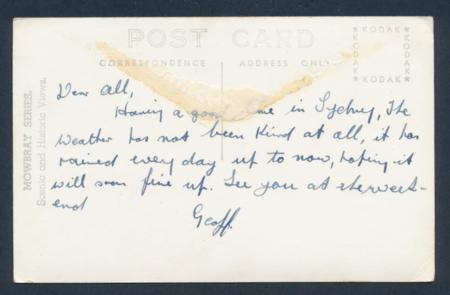 POST CARD
CORRESPONDENCE ADDRESS ONLY
KODAK
KODAK
KODAK
KODAK
MOWBRAY SERIES.
Scenic and Historic Views.
Dear All,
Having a good time in Sydney, The
weather has not been kind at all, it has
rained every day up to now, hoping it
will soon fine up. See you at the week-
end
Geoff.